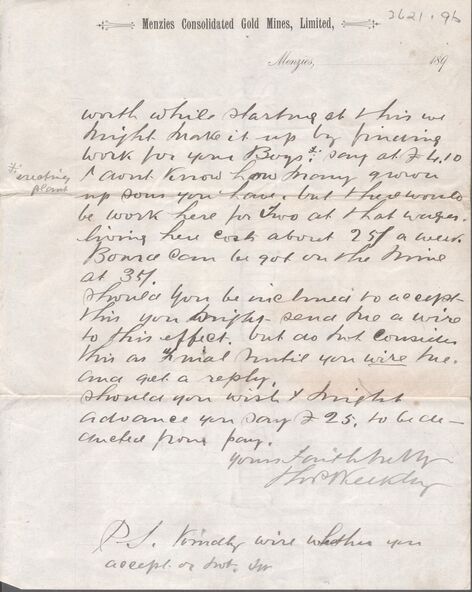 2621.96
Menzies Consolidated Gold Mines, Limited,
Menzies, 189
worth while starting at this we
might make it up by finding
work for your Boys * say at £4.10
* erecting
plant
I dont know how many grown
up sons you have. but there would
be work here for two at that wages.
living here costs about 25/ a week
Board can be got on the Mine
at 35/.
should you be inclined to accept
this you might send me a wire
to this effect. but do not consider
this as final until you wire me.
and get a reply.
should you wish I might
advance you say £25. to be de-
ducted from pay.
yours faithfully
P.S. Kindly wire whether you
accept or not.